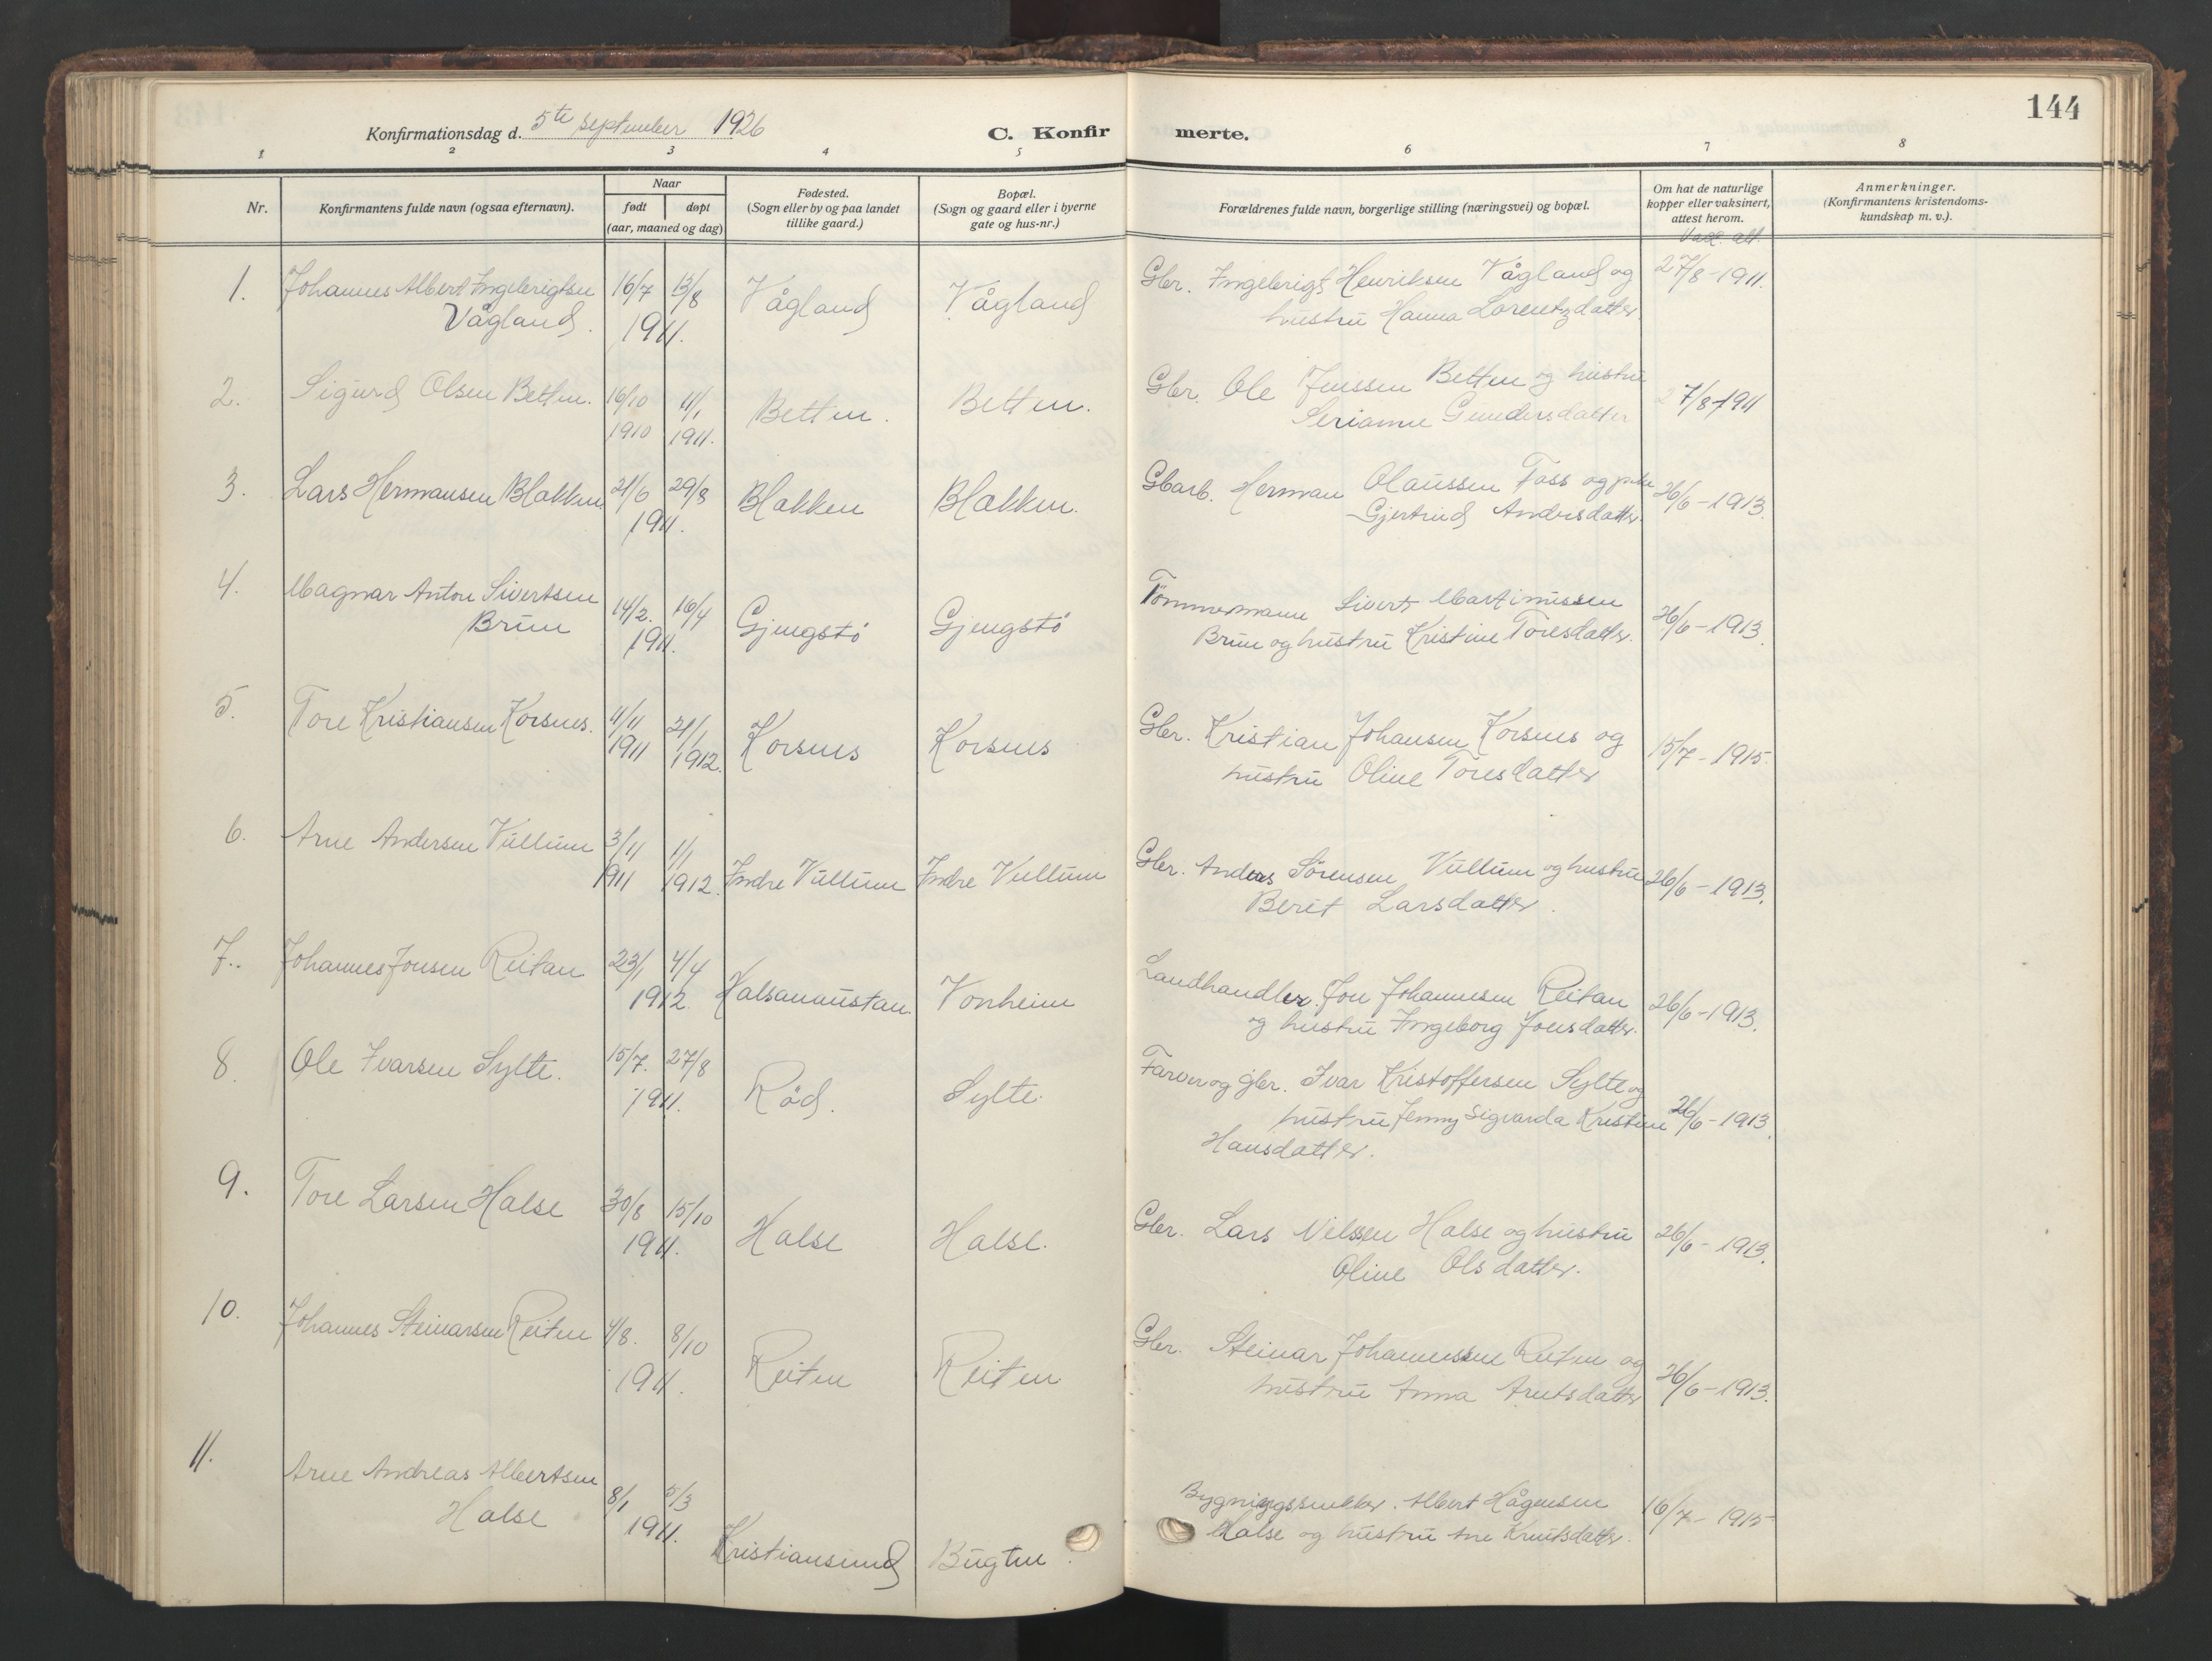 144
Konfirmationsdag d. 5te september 1926
C. Konfir merte.
1 2 3 4 5 6 7 8
Nr.
Konfirmantens fulde navn (ogsaa efternavn).
Naar
født døpt
(aar, maaned og dag)
Fødested.
(Sogn eller by og paa landet
tillike gaard.)
Bopæl.
(Sogn og gaard eller i byerne
gate og hus-nr.)
Forældrenes fulde navn, borgerlige stilling (næringsvei) og bopæl.
Om hat de naturlige
kopper eller vaksinert,
attest herom.
Anmerkninger.
(Konfirmantens kristendoms-
kundskap m. v.).
Vacc. att.
1. Johannes Albert Ingebrigtsen 16/7 13/8 Vågland Vågland Gbr. Ingebrigt Henriksen Vågland og 27/8-1911.
Vågland. 1911. hustru Hanna Lorentzdatter.
2. Sigurd Olsen Betten. 16/10 11/1 Betten. Betten. Gbr. Ole Jenssen Betten og hustru 27/8-1911
1910 1911. Serianne Gundersdatter
3. Lars Hermansen Blakken 21/6 29/8 Blakken Blakken. Gbarb. Herman Olaussen Foss og pike 26/6-1913.
1911. Gjertrud Andersdatter.
4. Magnar Anton Sivertsen 14/2. 16/4 Gjengstö Gjengstö Tömmermann Sivert Martinussen 26/6-1913.
Brun 1911. Brun og hustru Kristine Toresdatter.
5. Tore Kristiansen Korsnes. 4/11 21/1 Korsnes Korsnes Gbr. Kristian Johansen Korsnes og 15/7-1915.
1911 1912. hustru Oline Toresdatter
6. Arne Andersen Vullum 3/11 1/1 Indre Vullum Indre Vullum Gbr. Anders Sörensen Vullum og hustru 26/6-1913.
1911 1912. Berit Larsdatter.
7. Johannes Jonsen Reitan 23/1 4/4 Halsanaustan. Vonheim Landhandler. Jon Johannesen Reitan 26/6-1913.
1912. og hustru Ingeborg Jonsdatter.
8. Ole Ivarsen Sylte. 15/7. 27/8 Röd. Sylte. Farver og gbr. Ivar Kristoffersen Sylte og
1911. hustru Jenny Sigvarda Kristine 26/6-1913.
Hansdatter.
9. Tore Larsen Halse 30/8 15/10 Halse Halse. Gbr. Lars Nilssen Halse og hustru 26/6-1913.
1911. Oline Olsdatter.
10. Johannes Steinarsen Reiten 4/8. 8/10 Reiten Reiten Gbr. Steinar Johannessen Reiten og
1911. hustru Anna Arntsdatter 26/6-1913.
11. Arne Andreas Albertsen 8/1 5/3 Kristiansund Bugten. Bygningssnekker. Albert Hågensen 16/7-1915
Halse 1911. Halse og hustru Ane Knutsdatter.